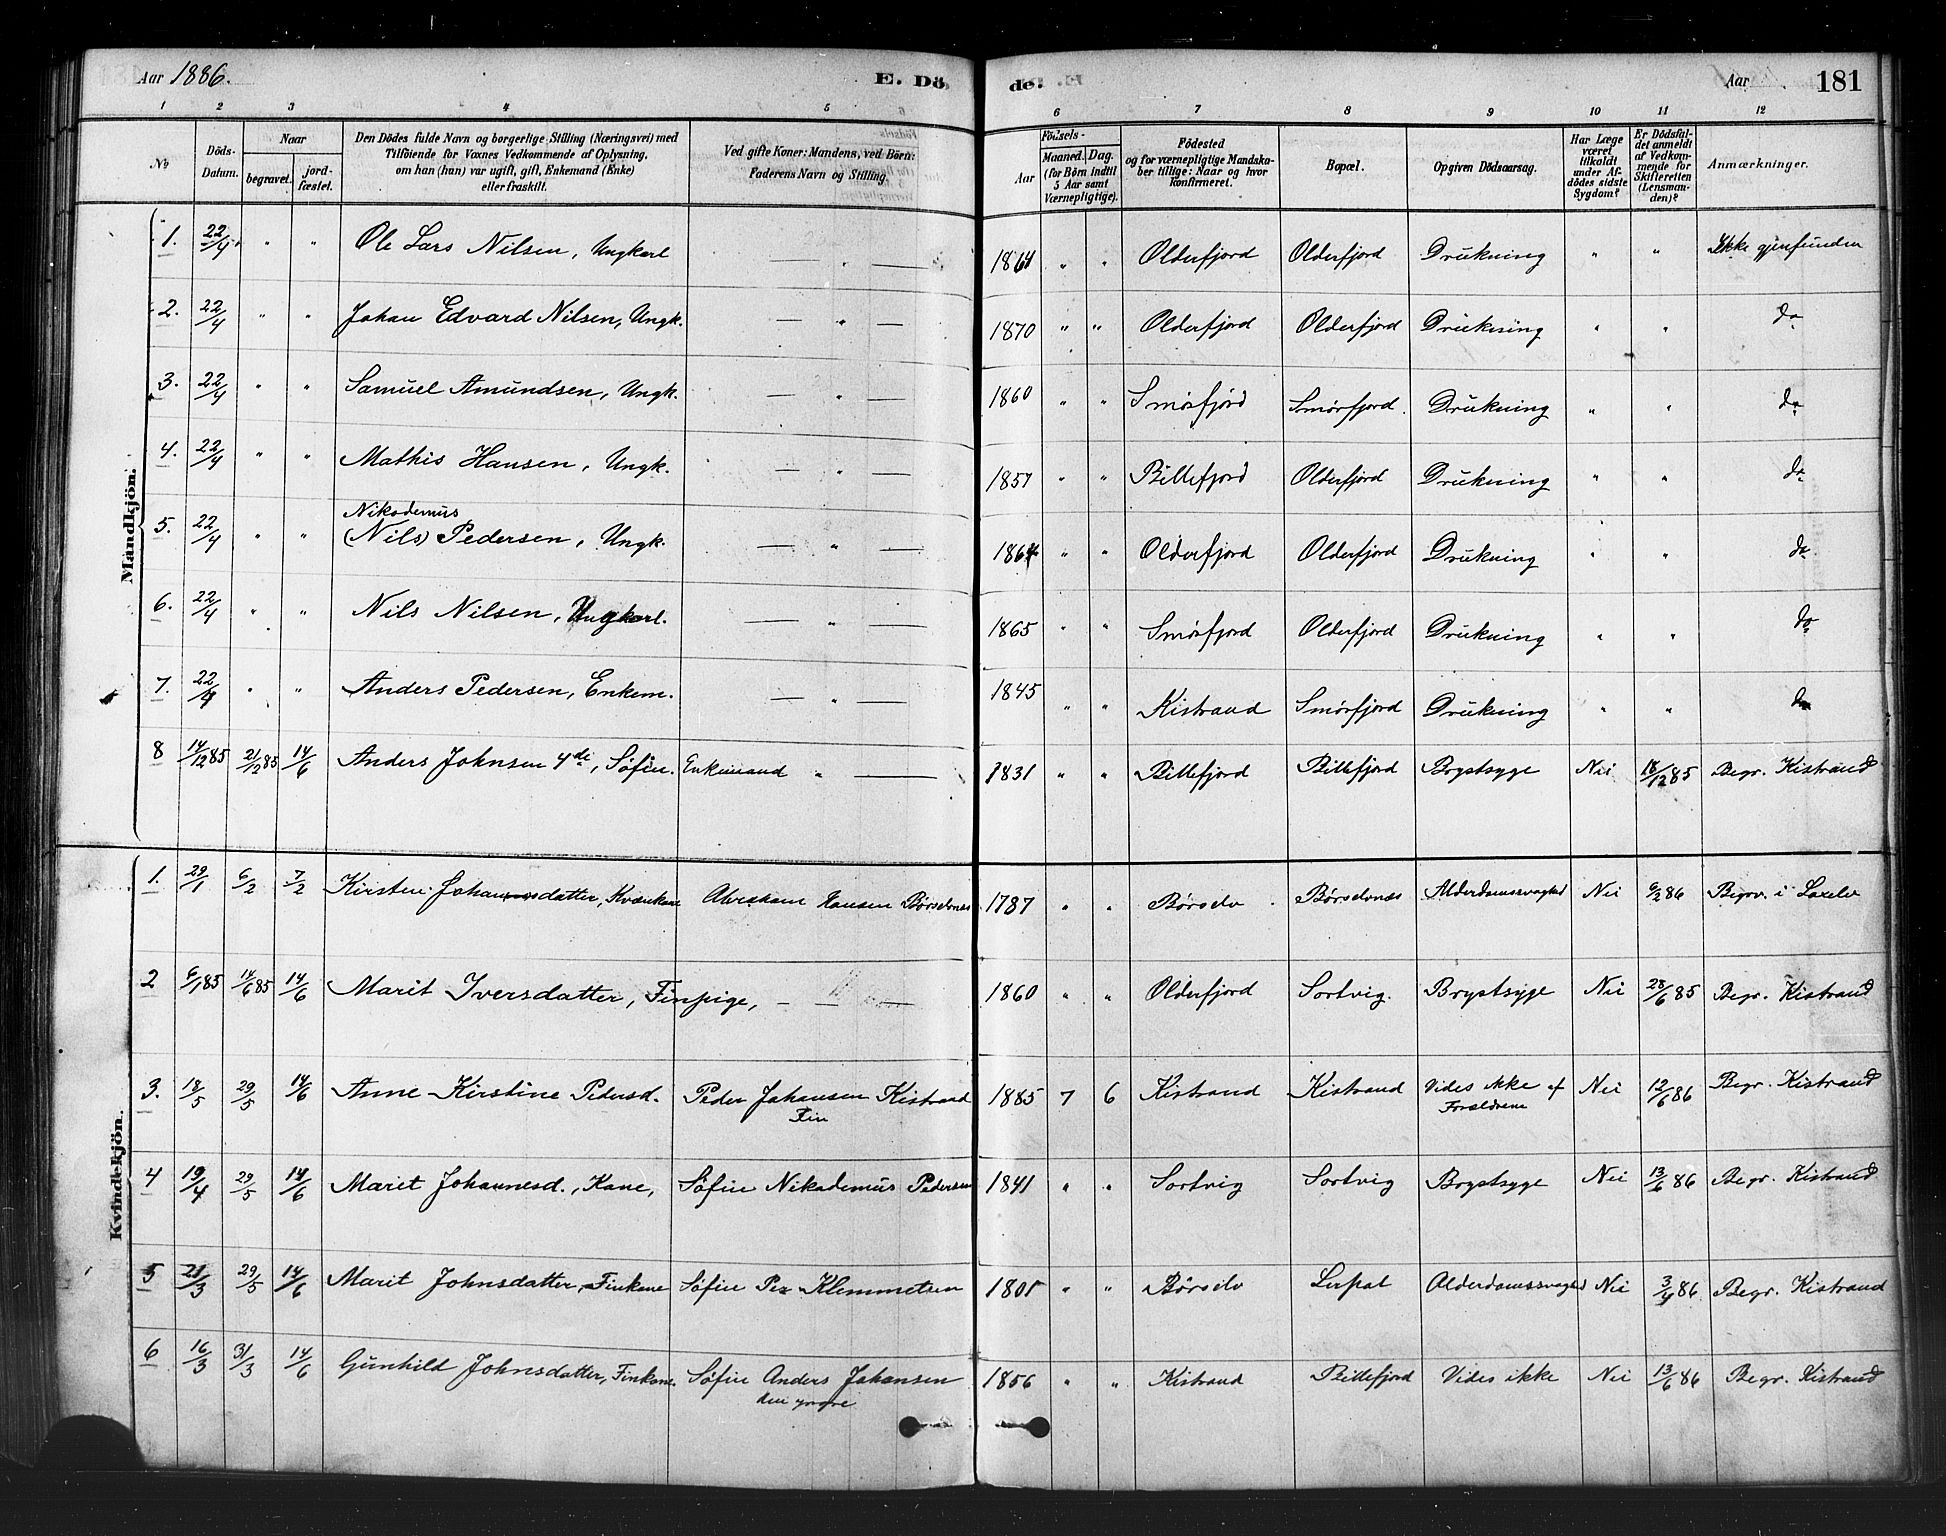 Aar 1886. E. Dö de. Aar 181
1 2 3 4 5 6 7 8 9 10 11 12
No Döds-Datum. Naar begravet. jordfæstet. Den Dödes fulde Navn og borgerlige Stilling (Næringsvei) med Tilföiende for Voxnes Vedkommende af Oplysning, om han (hun) var ugift, gift, Enkemand (Enke) eller fraskilt. Ved gifte Koner: Mandens, ved Börn: Faderens Navn og Stilling. Födsels- Aar Maaned. Dag. (for Börn indtil 5 Aar samt Værnepligtige). Födested og for værnepligtige Mandskaber tillige: Naar og hvor konfirmeret. Bopæl. Opgiven Dödsaarsag. Har Læge været tilkaldt under Afdödes sidste Sygdom? Er Dödsfaldet anmeldt af Vedkommende for Skifteretten (Lensmanden)? Anmærkninger.
Mandkjön.
1. 22/4 " " Ole Lars Nilsen, Ungkarl — " — 1864 " " Olderfjord Olderfjord Drukning " " Ikke gjenfunden
2. 22/4 " " Johan Edvard Nilsen, Ungk. — " — 1870 " " Olderfjord Olderfjord Drukning " " do
3. 22/4 " " Samuel Amundsen, Ungk. — " — 1860 " " Smörfjord Smörfjord. Drukning " " do
4. 22/4 " " Mathis Hansen, Ungk. — " — 1857 " " Billefjord Olderfjord Drukning " " do
Nikodemus
5. 22/4 " " (Nils) Pedersen, Ungk. — " — 1864 " " Olderfjord Olderfjord Drukning " " do
6. 22/4 " " Nils Nilsen, Ungkarl. — " — 1865 " " Smörfjord Olderfjord Drukning " " do
7. 22/4 " " Anders Pedersen, Enkem. — " — 1845 " " Kistrand Smörfjord Drukning " " do
8 14/12 85 21/12 85 14/6 Anders Johnsen 4de, Söfin. Enkemand " — 1831 " " Billefjord Billefjord Brystsyge Nei 18/12 85 Begr. Kistrand
Kvindekjön.
1. 29/1 6/2 7/2 Kirsten Johannesdatter, Kvænkone Abraham Hansen Börselvnæs 1787 " " Börselv Börselvnæs Alderdomssvaghed Nei 6/2 86 Begrv. i Laxelv
2 6/1 85 14/6 85 14/6 Marit Iversdatter, Finpige, — " — 1860 " " Olderfjord Sortvig. Brystsyge Nei 28/6 85 Begr. Kistrand
3. 18/5 29/5 14/6 Anne Kirstine Pedersd. Peder Johansen Kistrand 1885 7 6 Kistrand Kistrand Vides ikke af Nei 12/6 86 Begr. Kistrand
Fin Forældrene
4 19/4 29/5 14/6 Maret Johannesd., Kone, Söfin Nikodemus Pedersen 1841 " " Sortvig Sortvig Brystsyge Nei 13/6 86 Begr. Kistrand
5 21/3 29/5 14/6 Marit Johnsdatter, Finkone Söfin Per Klemmetsen 1801 " " Börselv Lerpol Alderdomssvaghed Nei 3/4 86 Begr. Kistrand
6 16/3 31/3 14/6 Gunhild Johnsdatter, Finkone. Söfin Anders Johansen 1856 " " Kistrand Billefjord Vides ikke Nei 13/6 86 Begr. Kistrand
den yngre